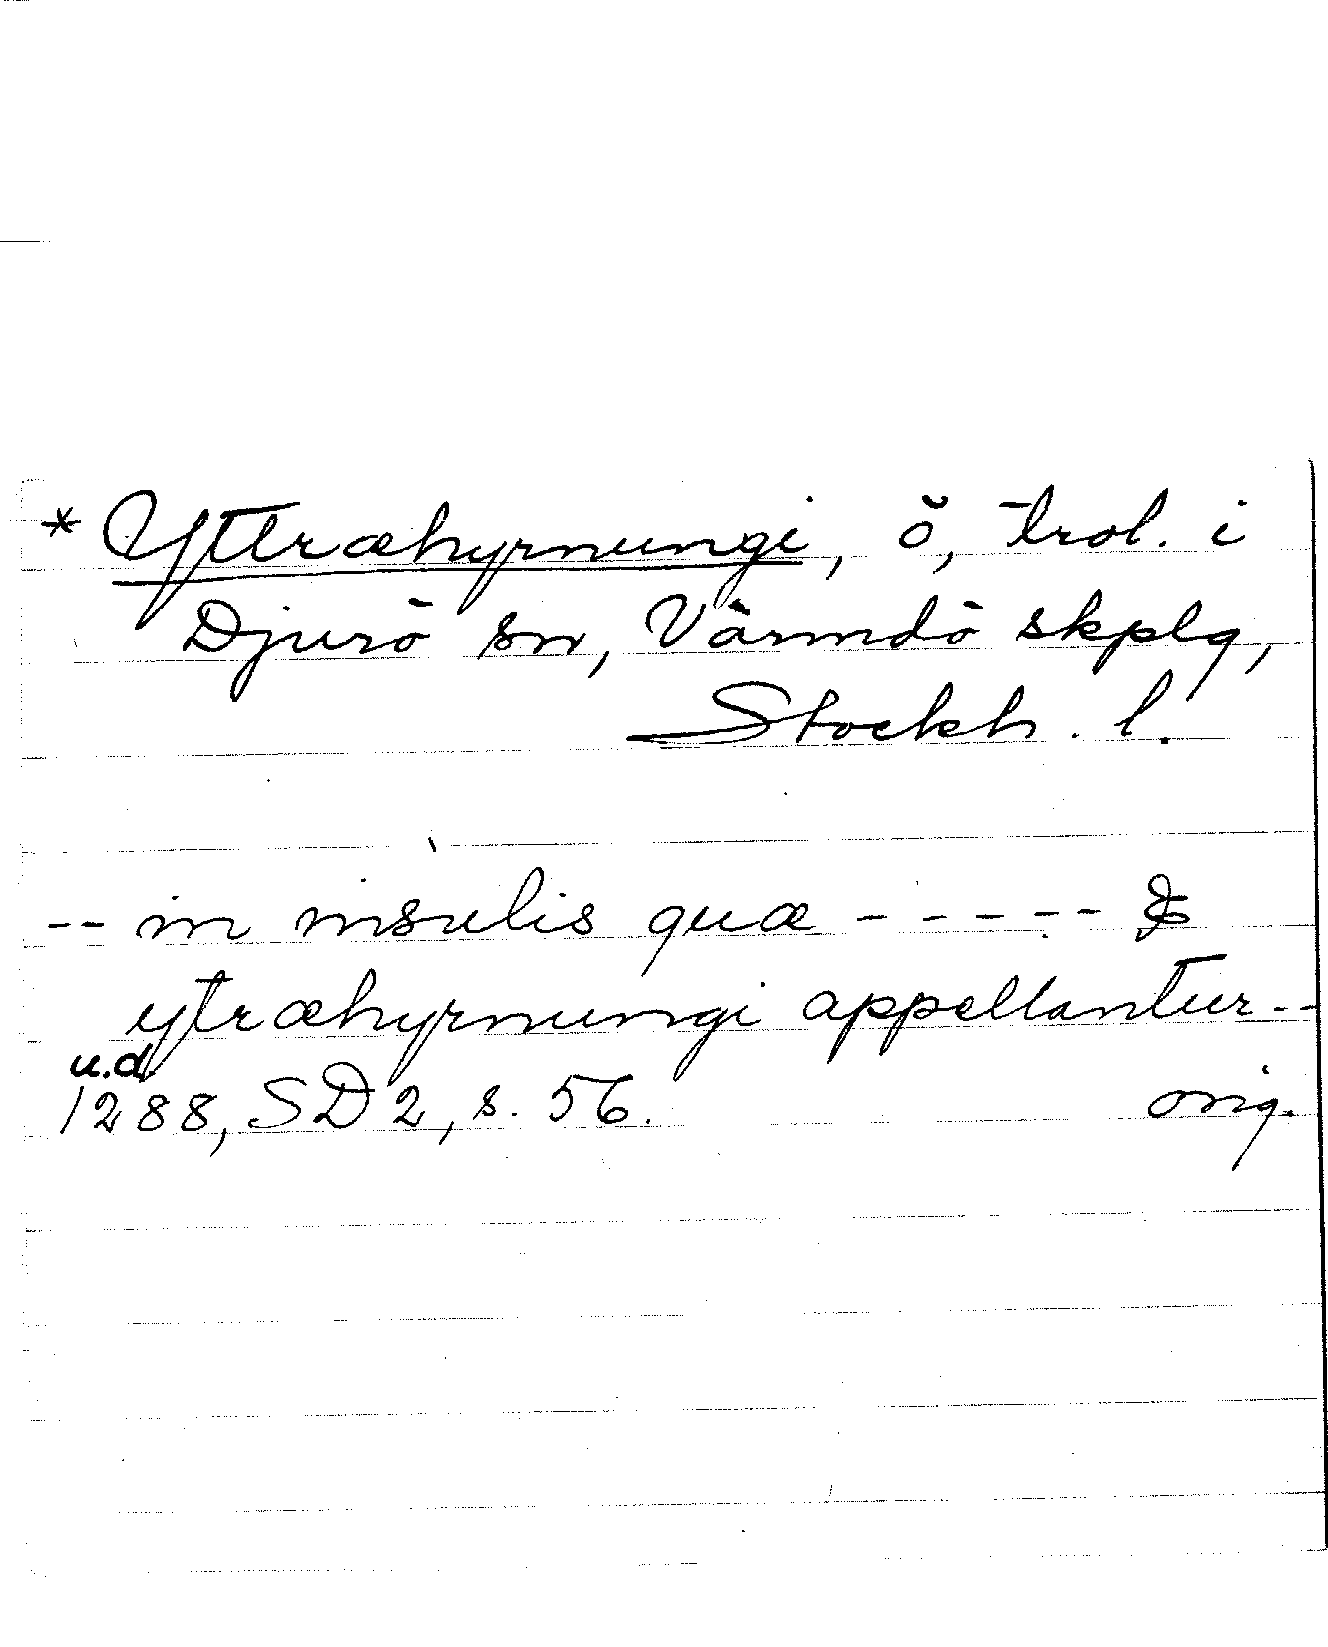 * Yttræhyrnungi, ö, trol. i
Djurö sn, Värmdö skplg,
Stockh. l.
-- in insulis quæ - - - - - &
ytræhyrnungi appellantur --
u.d.
1288, SD 2, s. 56. orig.